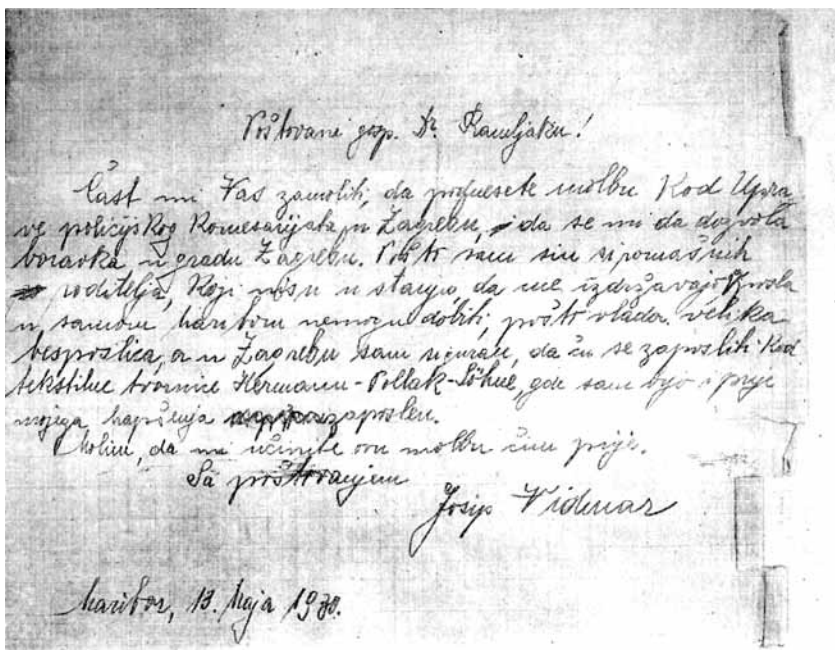 Poštovani gosp. Dr. Ramljaku!
Čast mi Vas zamoliti, da podnesete molbu Kod Upra-
ve policijskog Komesarijata u Zagrebu, da se mi da dozvola
boravka u gradu Zagrebu. Pošto sam sin siromašnih
roditelja, Koji nisu u stanju da me izdržavajo posla
u samom Mariboru nemogu dobiti, pošto vlada velika
besposlica, a u Zagrebu sam siguran, da ću se zaposliti Kod
tekstilne tvornice Hermann-Pollak-Söhne, gde sam bijo i prije
mojega hapšenja zaposlen.
Molim, da mi učinite ovu molbu čim prije.
Sa poštovanjem
Josip Vidmar
Maribor, 13. Maja 1930.